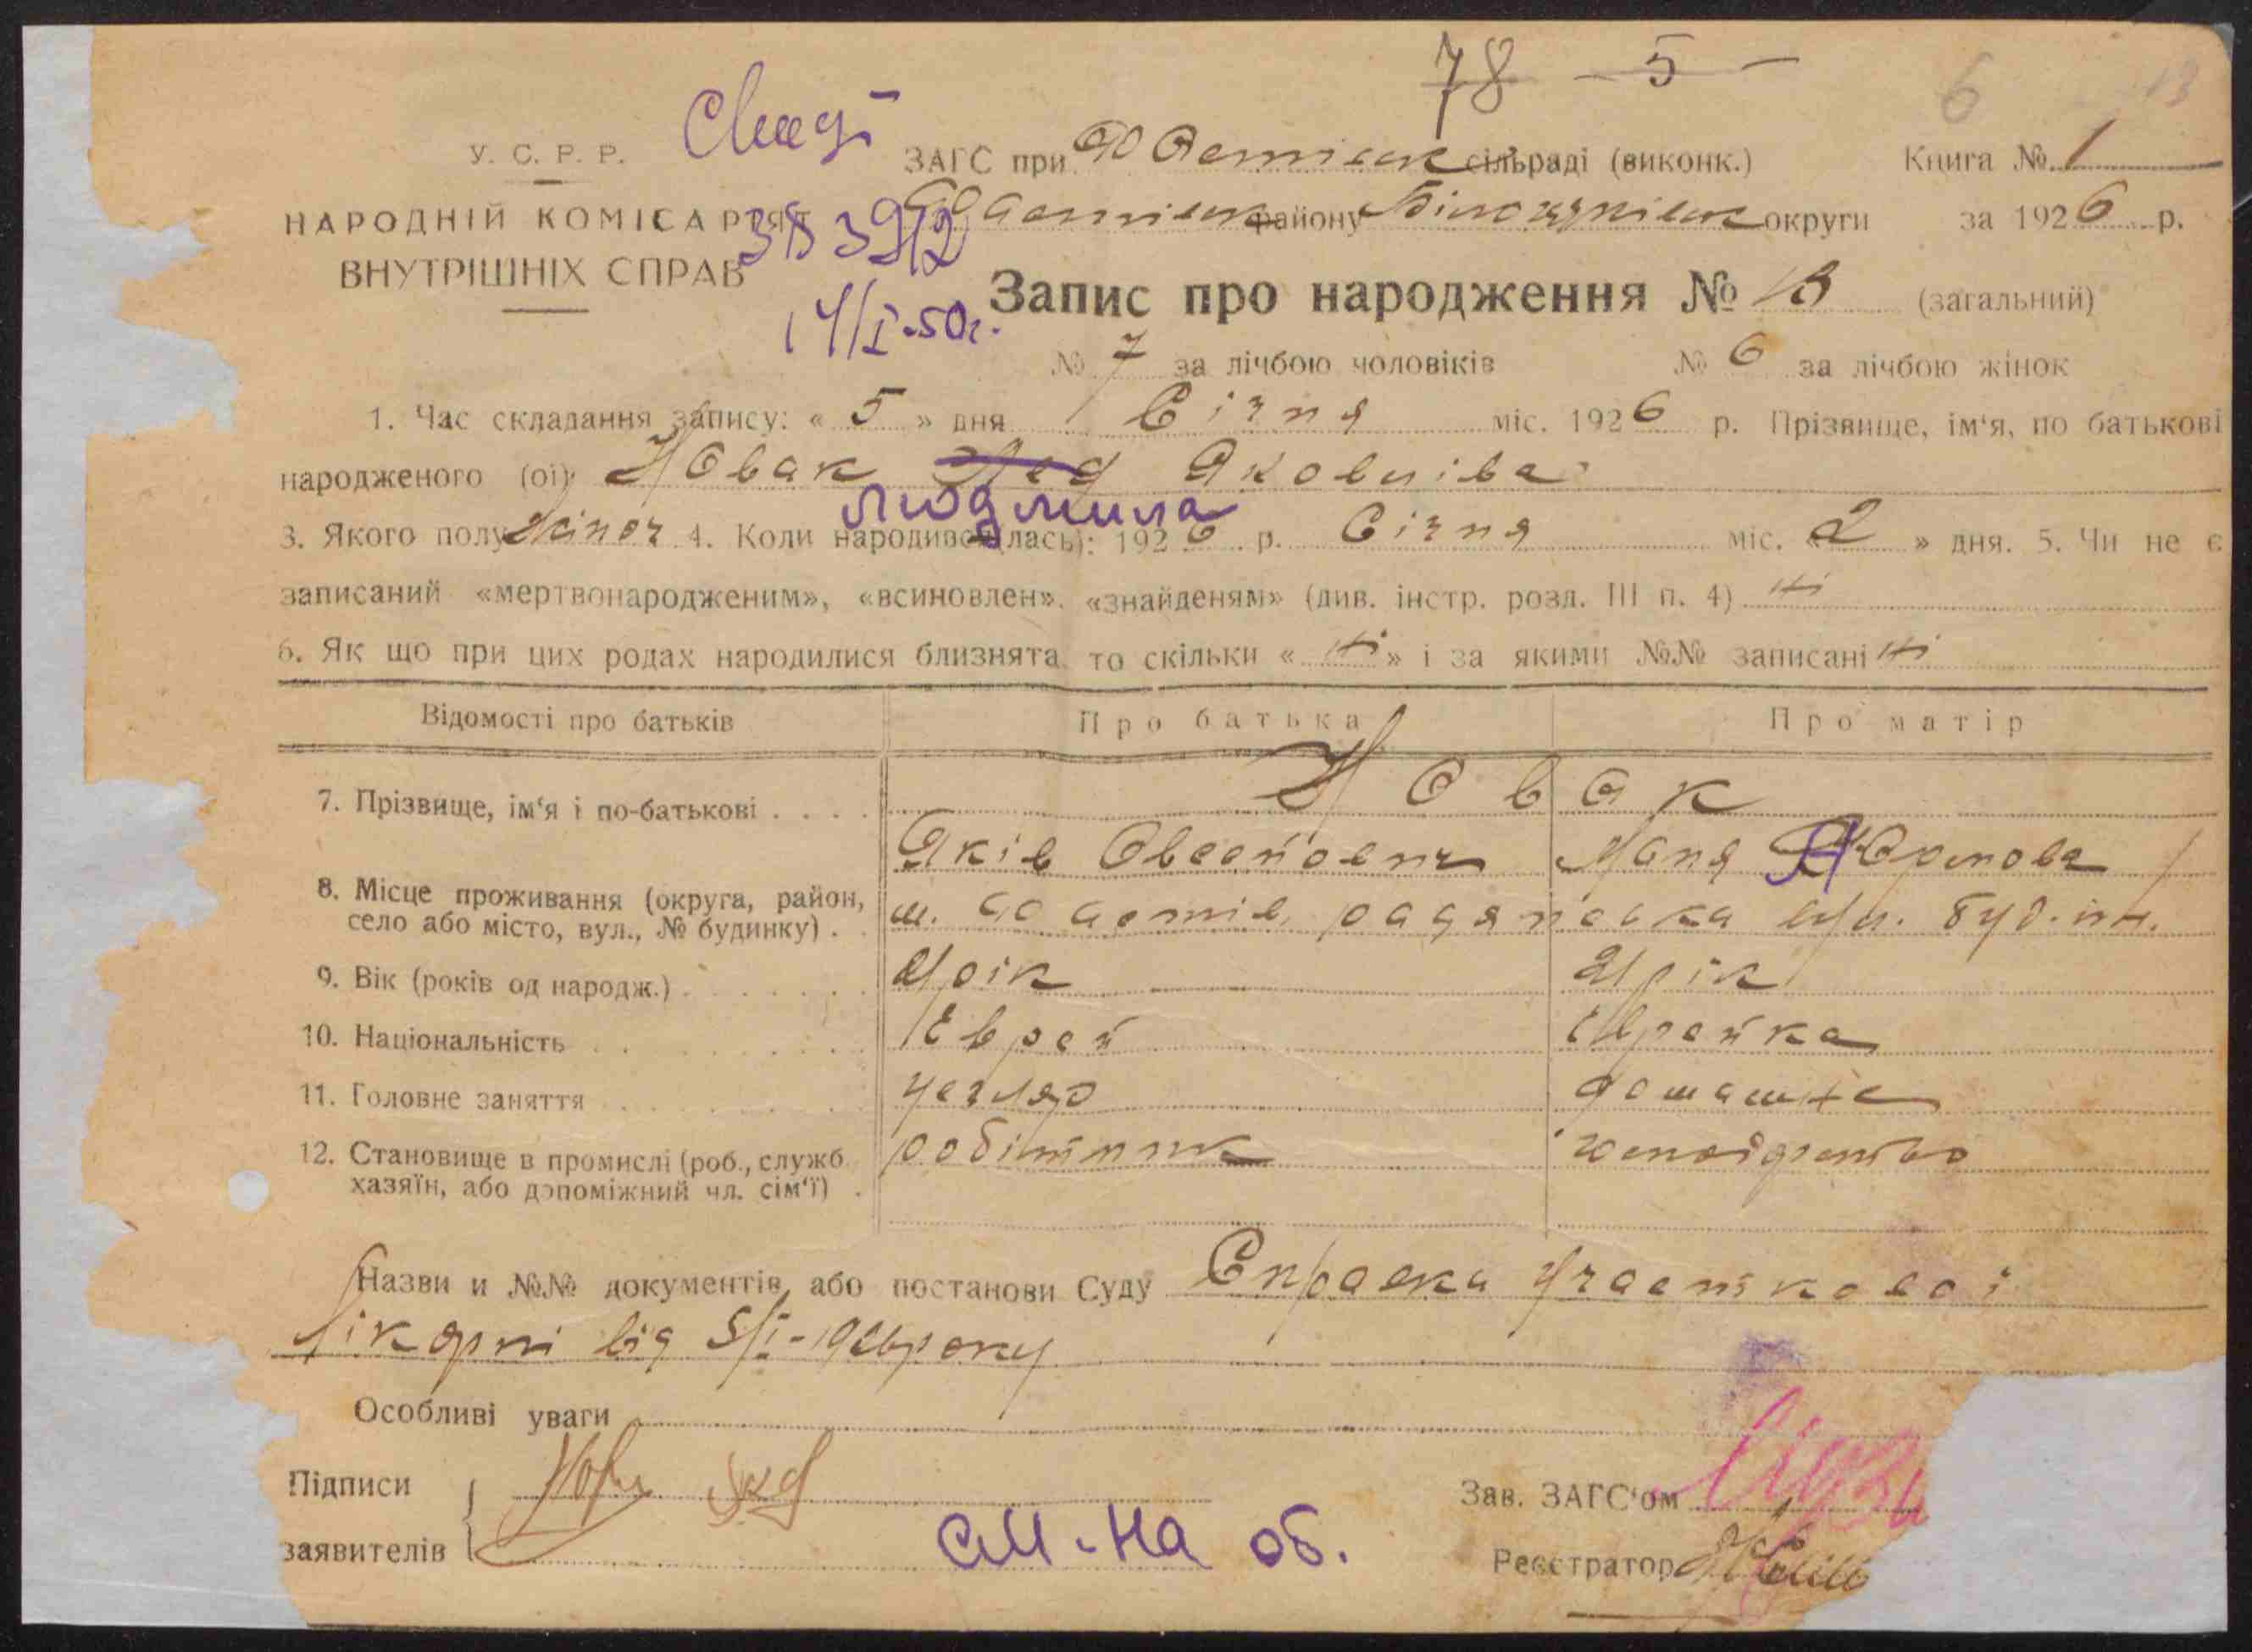 78 – 5 –
6 13
У. С. Р. Р.
ЗАГС при Фастівськ сільраді (виконк.) Книга № 1
НАРОДНІЙ КОМІСАРІЯТ Фастівськ району Білоцерківськ округи за 1926 р.
ВНУТРІШНІХ СПРАВ
14/I-50г.
Запис про народження № 13 (загальний)
№ 7 за лічбою чоловіків № 6 за лічбою жінок
1. Час складання запису: « 5 » дня Січня міс. 1926 р. Прізвище, ім‘я, по батькові
народженого (ої) Новак Яковлівна
Людмила
3. Якого полу Жіноч 4. Коли народився(лась): 1926 р. Січня міс. « 2 » дня. 5. Чи не є
записаний «мертвонародженим», «всиновлен», «знайденям» (див. інстр. розд. III п. 4) ні
6. Як що при цих родах народилися близнята, то скільки « ні » і за якими №№ записані ні
Відомості про батьків Про батька Про матір
7. Прізвище, ім‘я і по-батькові . . . . Новак
Яків Маня
8. Місце проживання (округа, район,
село або місто, вул., № будинку) . . м. Фастів, радянська вул. буд.
9. Вік (років од народж.) . . . . . . . 21 рік 21 рік
10. Національність . . . . . . . Єврей Єврейка
11. Головне заняття . . . . . . . домашнє
12. Становище в промислі (роб., служб.
хазяїн, або допоміжний чл. сім‘ї) . робітник господрство
Назви и №№ документів, або постанови Суду Справка Участкової
лікарні від 5/I-1926 року
Особливі уваги
Підписи
заявителів
См. на об.
Зав. ЗАГС‘ом
Реєстратор